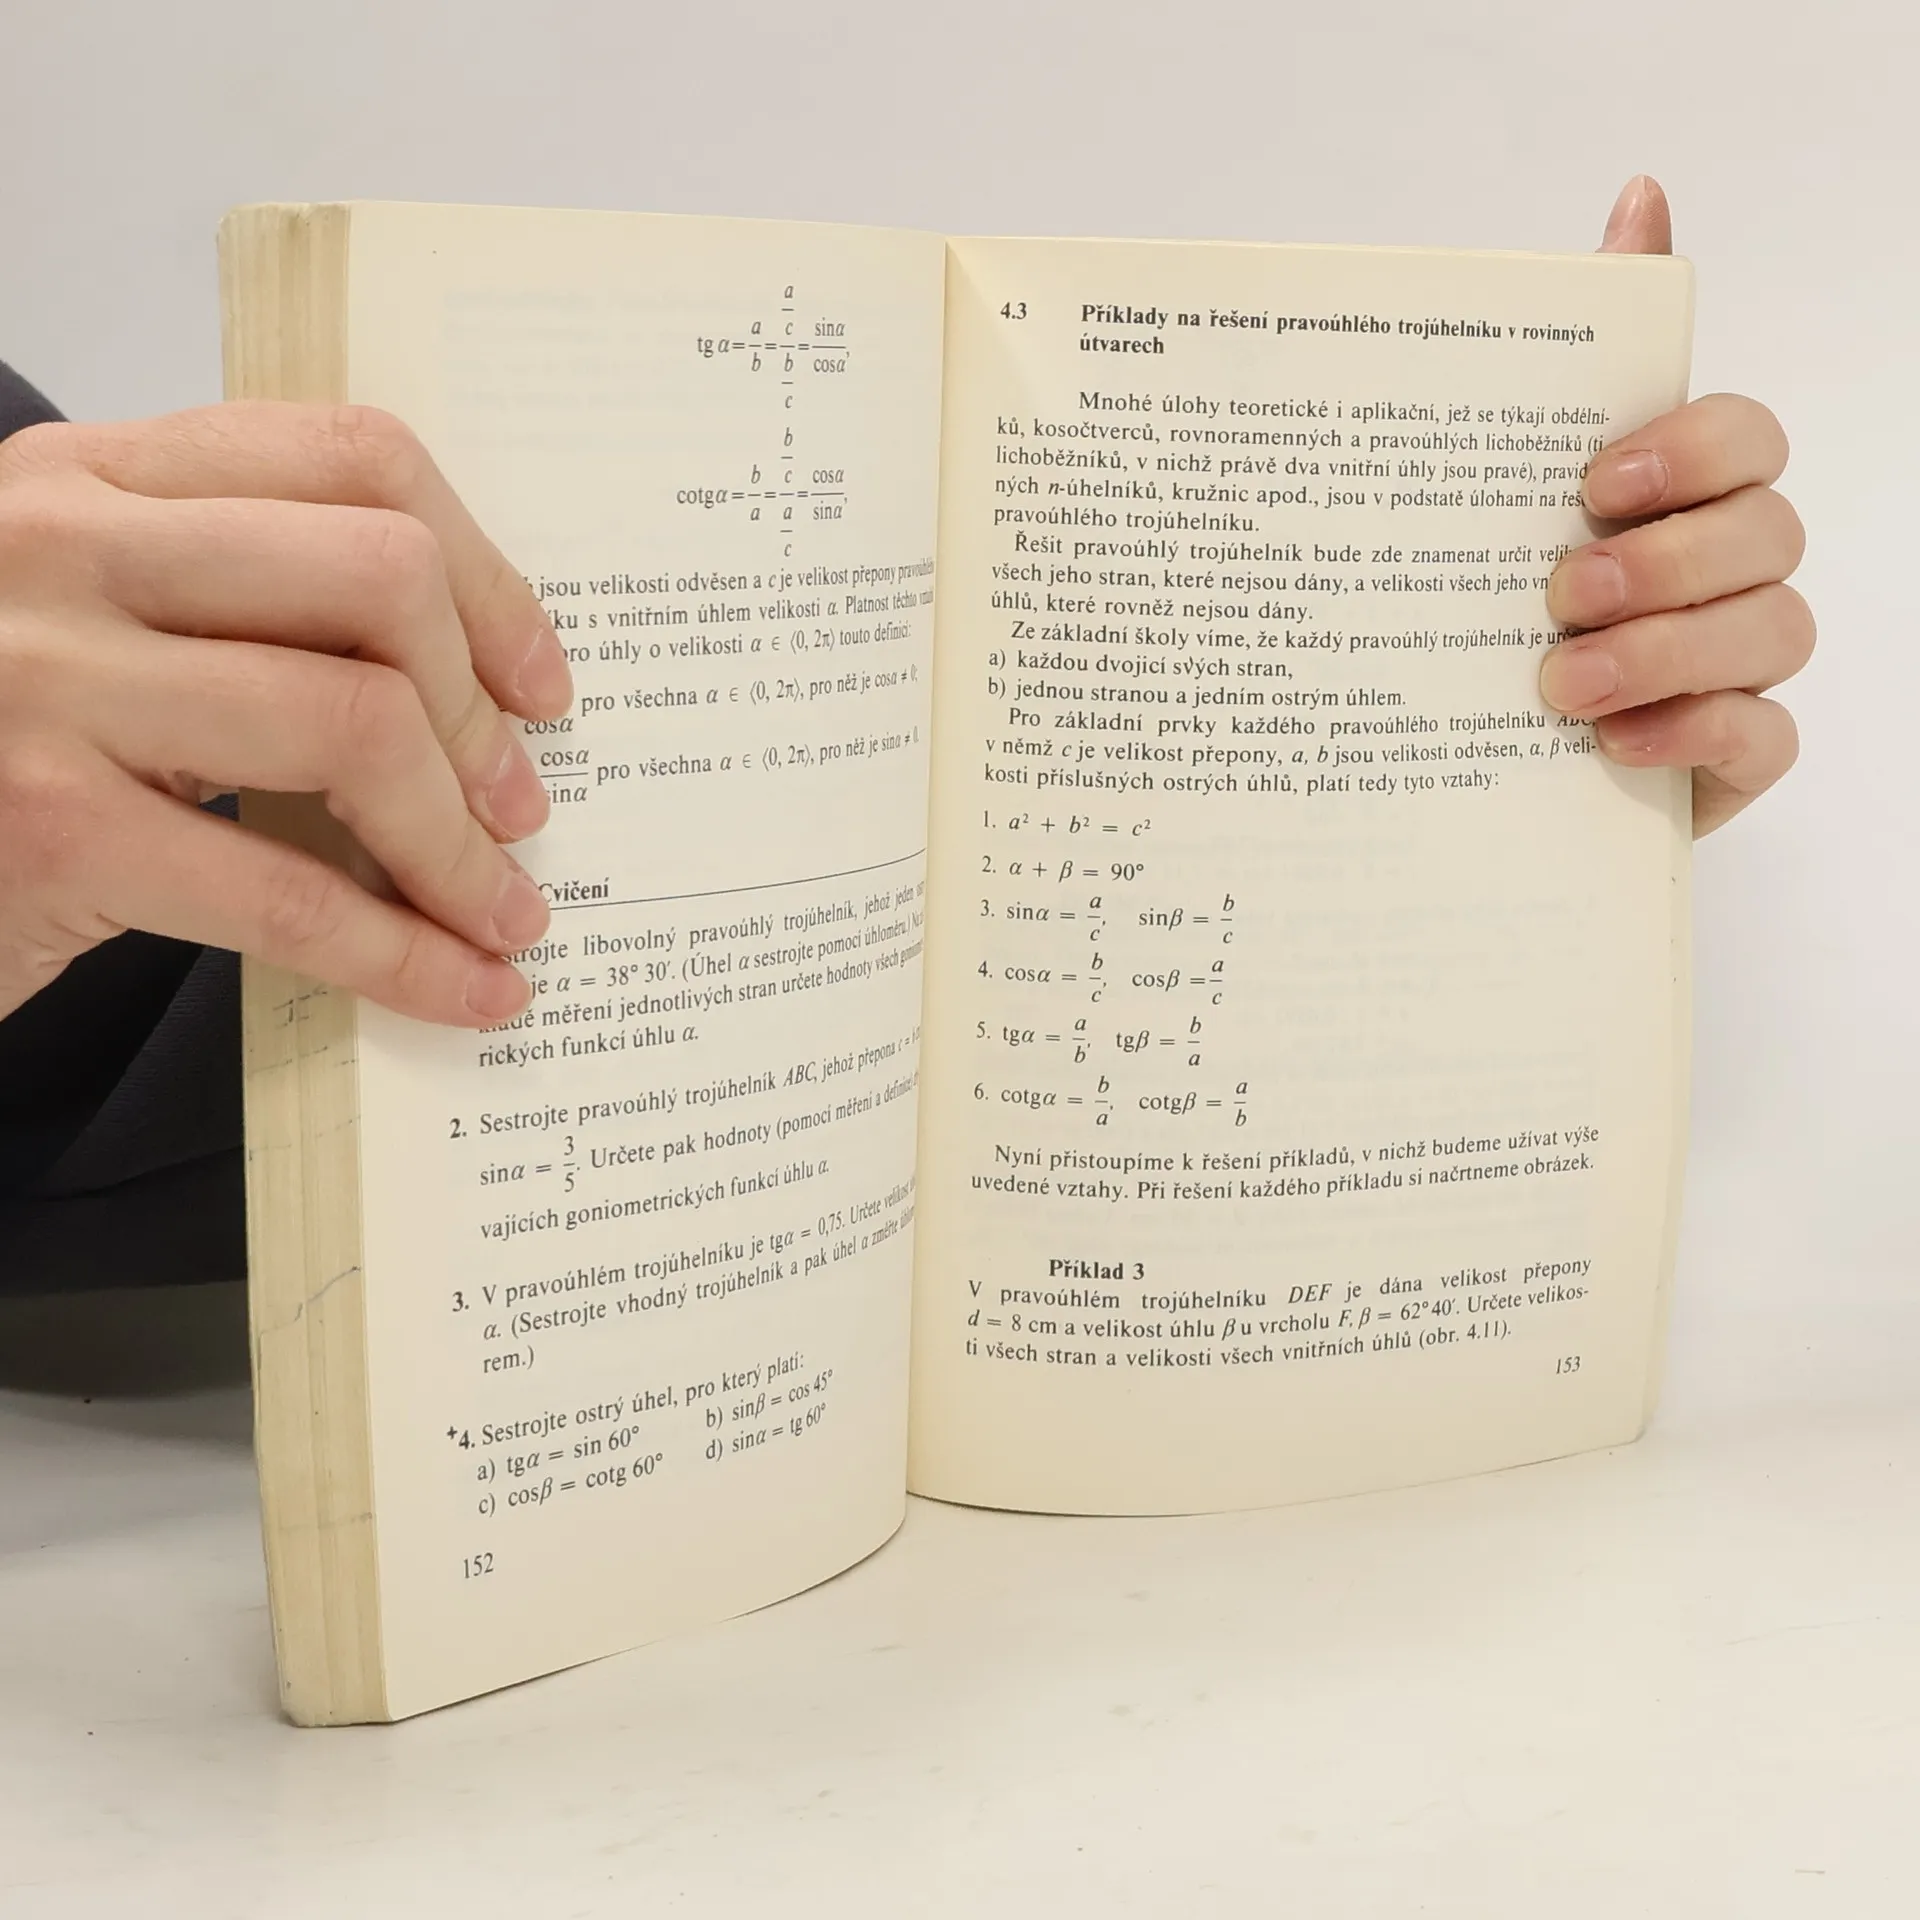 tg α = a/b = (a/c)/(b/c) = sinα/cosα,
cotgα = b/a = (b/c)/(a/c) = cosα/sinα,
jsou velikosti odvěsen a c je velikost přepony
s vnitřním úhlem velikosti α. Platnost těchto
úhly o velikosti α ∈ ⟨0, 2π⟩ touto definicí:
cosα pro všechna α ∈ ⟨0, 2π⟩, pro něž je cosα ≠ 0;
cosα/sinα pro všechna α ∈ ⟨0, 2π⟩, pro něž je sinα ≠ 0.
Cvičení
libovolný pravoúhlý trojúhelník, jehož jeden
je α = 38° 30′. (Úhel α sestrojte pomocí úhloměru.)
měření jednotlivých stran určete hodnoty všech
rických funkcí úhlu α.
2. Sestrojte pravoúhlý trojúhelník ABC, jehož přepona c =
sinα = 3/5. Určete pak hodnoty (pomocí měření a definice)
vajících goniometrických funkcí úhlu α.
3. V pravoúhlém trojúhelníku je tgα = 0,75. Určete velikost
α. (Sestrojte vhodný trojúhelník a pak úhel α změřte
rem.)
+4. Sestrojte ostrý úhel, pro který platí:
a) tgα = sin 60° b) sinβ = cos 45°
c) cosβ = cotg 60° d) sinα = tg 60°
152
4.3 Příklady na řešení pravoúhlého trojúhelníku v rovinných
útvarech
Mnohé úlohy teoretické i aplikační, jež se týkají obdélní-
ků, kosočtverců, rovnoramenných a pravoúhlých lichoběžníků (tj.
lichoběžníků, v nichž právě dva vnitřní úhly jsou pravé), pravid
ných n-úhelníků, kružnic apod., jsou v podstatě úlohami na řeš
pravoúhlého trojúhelníku.
Řešit pravoúhlý trojúhelník bude zde znamenat určit veli
všech jeho stran, které nejsou dány, a velikosti všech jeho vn
úhlů, které rovněž nejsou dány.
Ze základní školy víme, že každý pravoúhlý trojúhelník je
a) každou dvojicí svých stran,
b) jednou stranou a jedním ostrým úhlem.
Pro základní prvky každého pravoúhlého trojúhelníku ABC,
v němž c je velikost přepony, a, b jsou velikosti odvěsen, α, β veli-
kosti příslušných ostrých úhlů, platí tedy tyto vztahy:
1. a² + b² = c²
2. α + β = 90°
3. sinα = a/c, sinβ = b/c
4. cosα = b/c, cosβ = a/c
5. tgα = a/b, tgβ = b/a
6. cotgα = b/a, cotgβ = a/b
Nyní přistoupíme k řešení příkladů, v nichž budeme užívat výše
uvedené vztahy. Při řešení každého příkladu si načrtneme obrázek.
Příklad 3
V pravoúhlém trojúhelníku DEF je dána velikost přepony
d = 8 cm a velikost úhlu β u vrcholu F, β = 62°40′. Určete velikos-
ti všech stran a velikosti všech vnitřních úhlů (obr. 4.11).
153